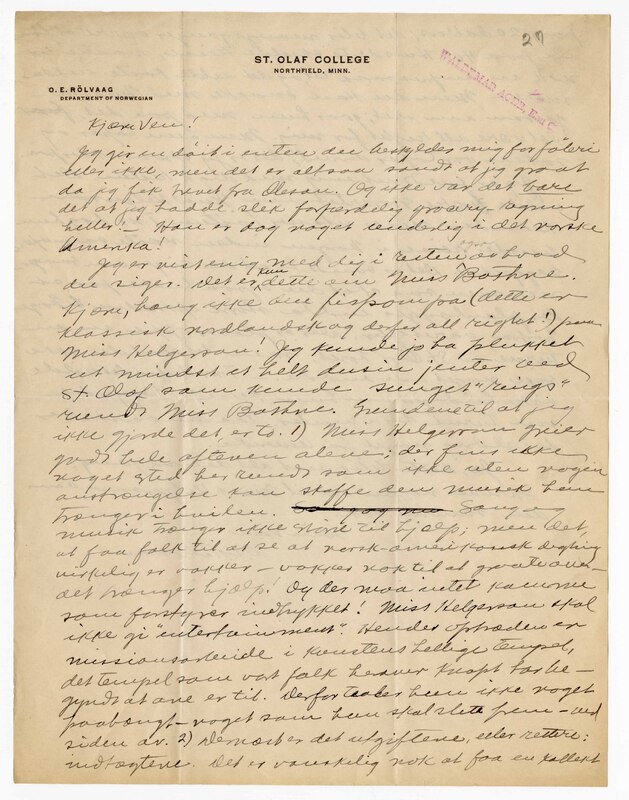 27
ST. OLAF COLLEGE
NORTHFIELD, MINN.
WALDEMAR AGER, Eau C
O. E. RÖLVAAG
DEPARTMENT OF NORWEGIAN
Kjære Ven!
Jeg gir en döit i enten du beskyldes mig for föleri
eller ikke, men det er altsaa sandt at jeg graat
da jeg fik brevet fra Oleson. Og ikke var det bare
det at jeg hadde slik forfærdelig grocery regning
heller. — Han er dog noget underlig i det norske
Amerika!
Jeg er vist enig med dig i resten av hvad
du siger. Det er kun dette om Miss Bothne.
Kjære, hæng ikke den fispompa (dette er
klassisk nordlandsk og derfor all right!) paa
Miss Helgerson! Jeg kunde jo ha plukket
ut mindst et helt dusin jenter ved
St. Olaf som kunde sunget "rings"
rundt Miss Bothne. Grundene til at jeg
ikke gjorde det, er to. 1) Miss Helgerson greier
godt hele aftenen alene; der fins ikke
noget sted her rundt som ikke uten nogen
anstrængelse kan skaffe den musik hun
trænger i hvilen. Sang og
musik trænger ikke större til hjælp; men det
at faa folk til at se at norsk-amerikansk digtning
virkelig er vakker — vakker nok til at graate over —
det trænger hjælp! Og der maa intet komme
som forstyrrer indtrykket! Miss Helgerson skal
ikke gi "entertainment". Hendes optræden er
missionsarbeide i kunstens hellige tempel,
det tempel som vort folk herover knapt har be-
gyndt at ane er til. Derfor hun ikke noget
paahængt — noget som hun skal slite frem — ved
siden av. 2) Dernæst er det utgiftene, eller rettere:
indtægtene. Det er vanskelig nok at faa en kollekt